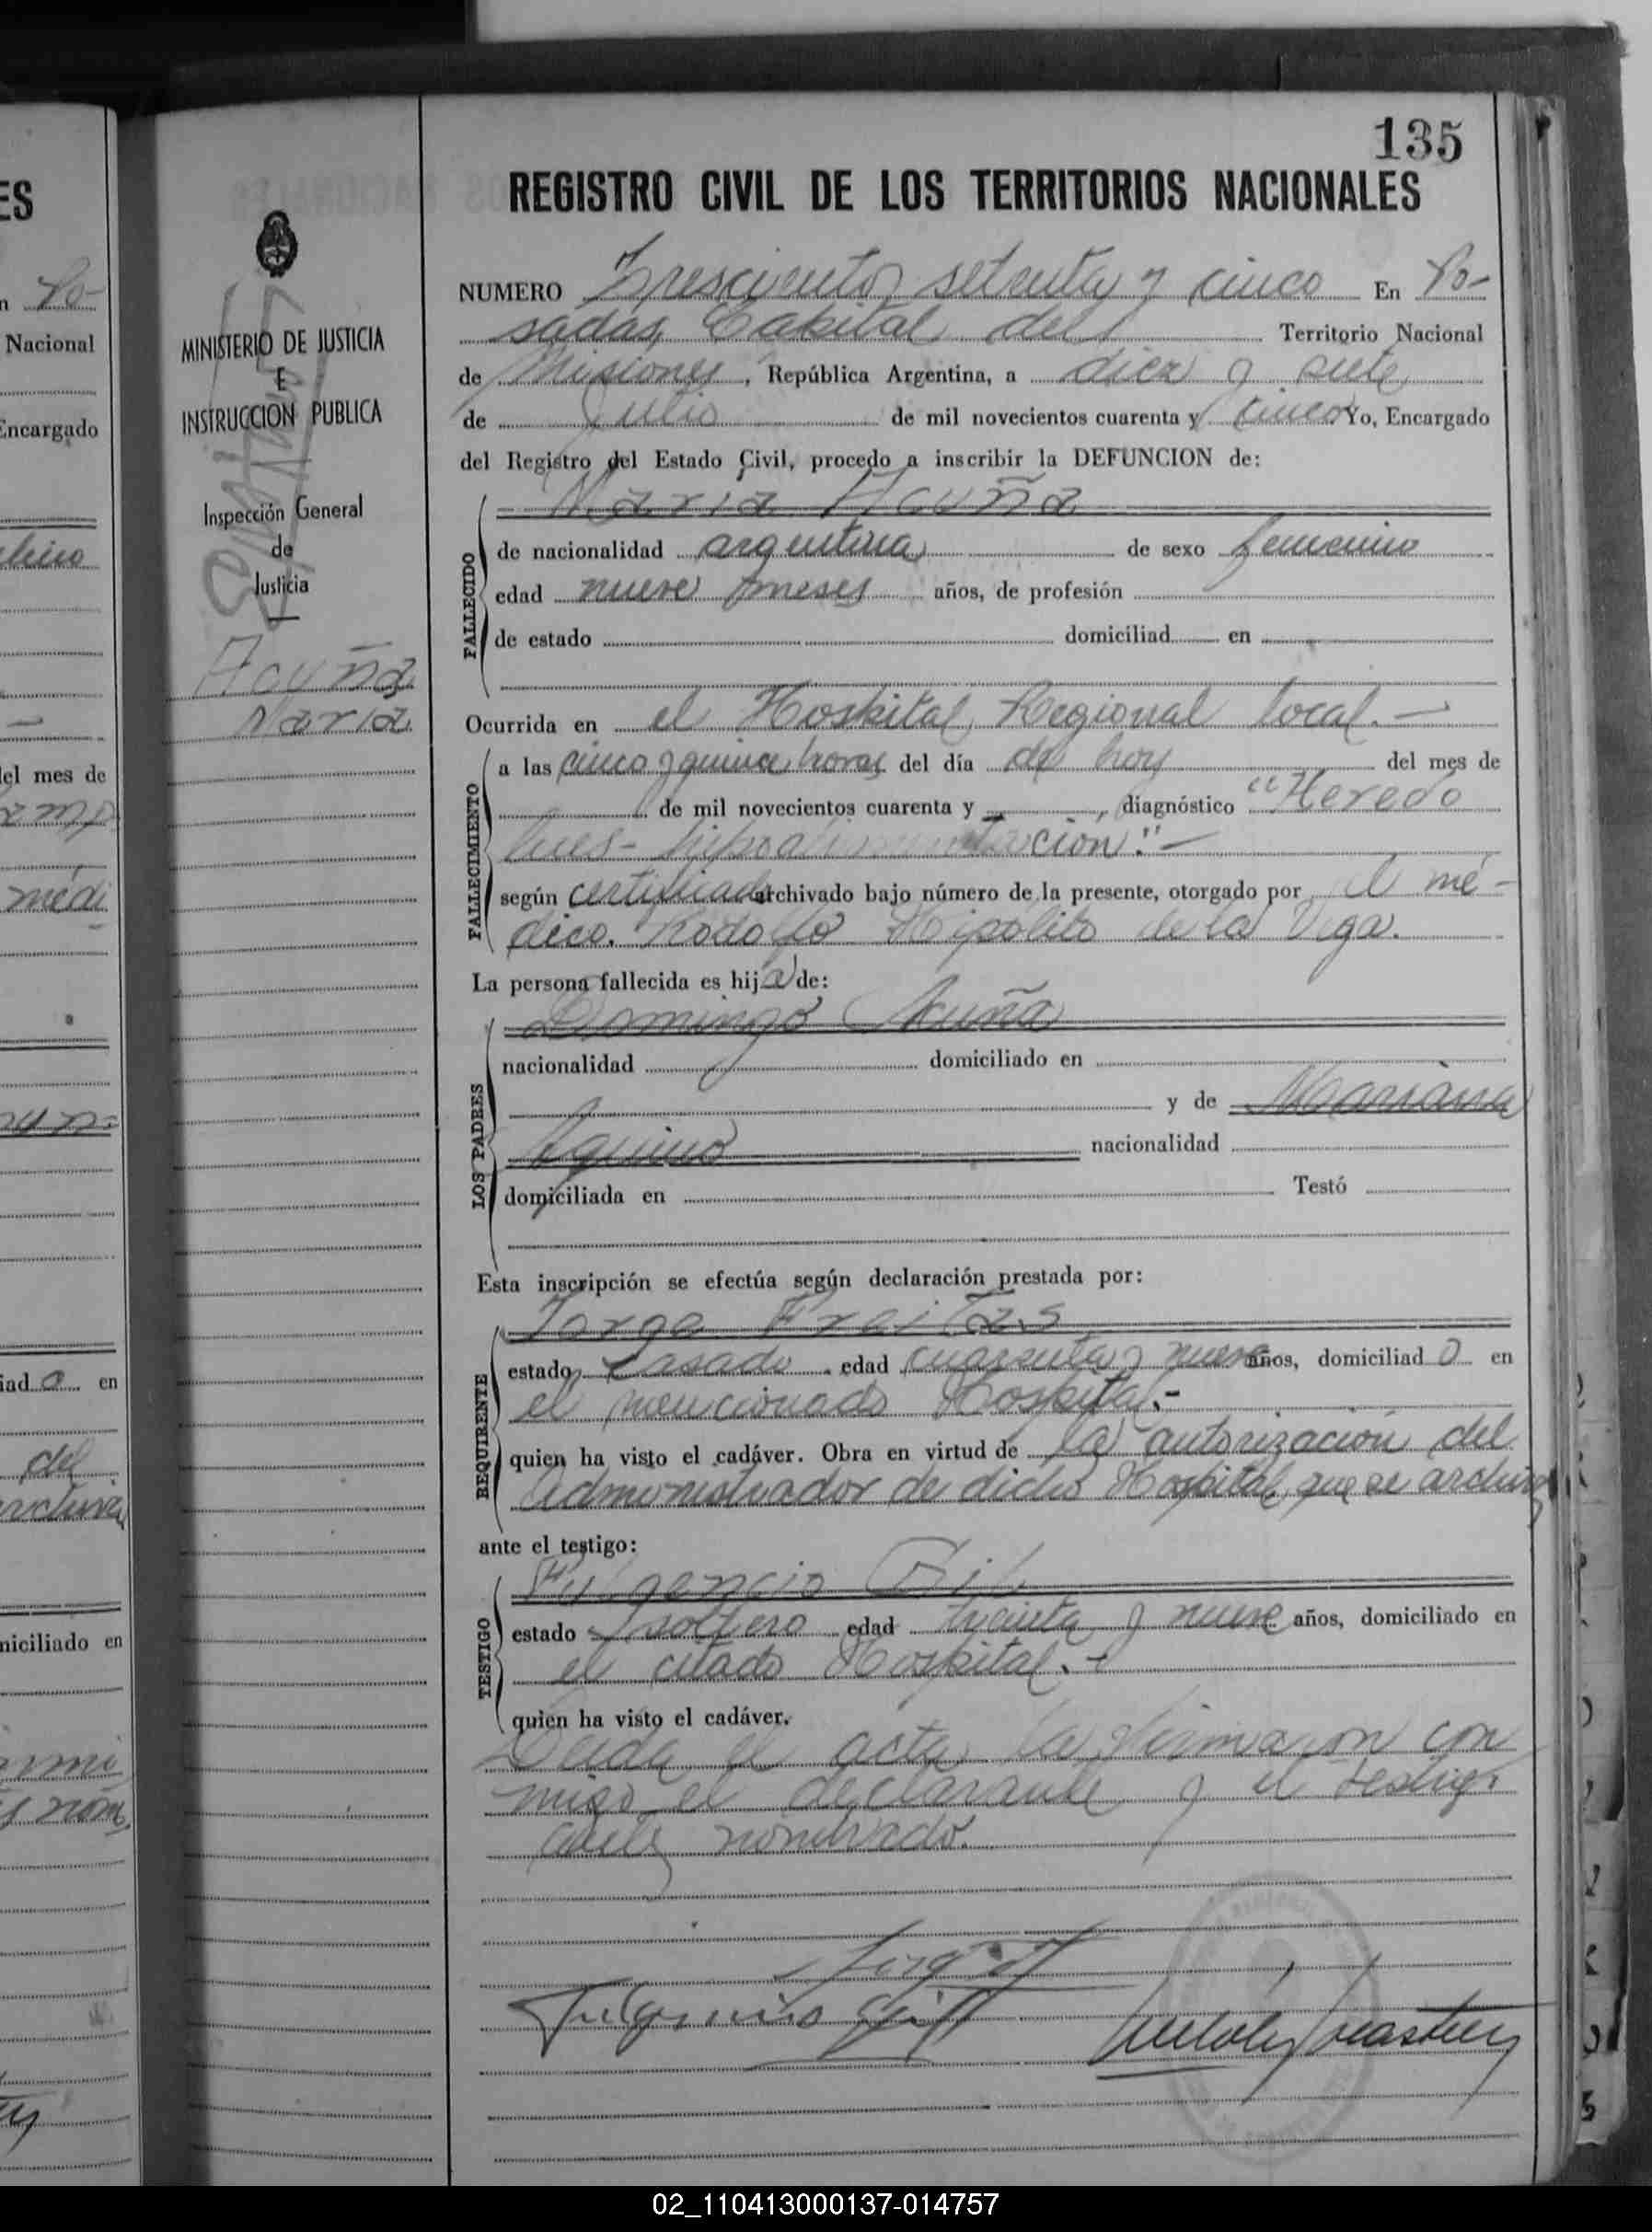 135
REGISTRO CIVIL DE LOS TERRITORIOS NACIONALES
NUMERO Trescientos setenta y cinco En Po-
sadas, Capital del Territorio Nacional
de Misiones, República Argentina, a diez y siete
de Julio de mil novecientos cuarenta y cinco Yo, Encargado
del Registro del Estado Civil, procedo a inscribir la DEFUNCION de:
Maria Acuña
FALLECIDO
de nacionalidad argentina de sexo femenino
edad nueve meses años, de profesión
de estado domiciliad en
Ocurrida en el Hospital Regional local.-
FALLECIMIENTO
a las cinco y quince horas del día de hoy del mes de
de mil novecientos cuarenta y , diagnóstico "Heredo
lues-
según certificado archivado bajo número de la presente, otorgado por el mé-
dico. Rodolfo Hipólito de la Vega.
La persona fallecida es hija de:
LOS PADRES
Domingo Acuña
nacionalidad domiciliado en
y de Mariana
Aquino nacionalidad
domiciliada en Testó
Esta inscripción se efectúa según declaración prestada por:
REQUIRENTE
Jorge Freitas
estado casado. edad cuarenta y nueve años, domiciliado en
el mencionado Hospital.-
quien ha visto el cadáver. Obra en virtud de la autorización del
Administrador de dicho Hospital, que se archiva
ante el testigo:
TESTIGO
Fulgencio Gil
estado soltero edad treinta y nueve años, domiciliado en
el citado Hospital.-
quien ha visto el cadáver.
Leida el acta, la firmaron con
migo el declarante y el testigo
nombrado.
Fulgencio Gil
MINISTERIO DE JUSTICIA
E
INSTRUCCION PUBLICA
Inspección General
de
Justicia
Acuña
Maria
ES
n Po-
Nacional
Encargado
del mes de
médi
iad o en
del
archiva
niciliado en
02_110413000137-014757